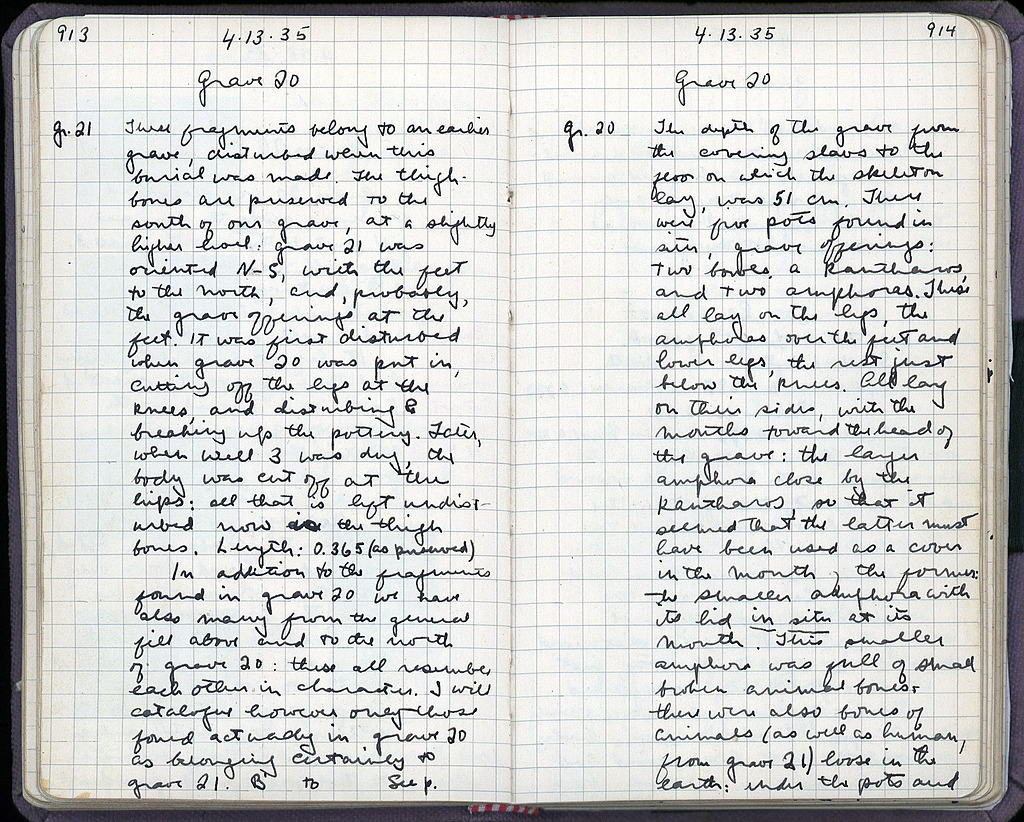 913
4.13.35
Grave 20
gr. 21 These fragments belong to an earlier
grave, disturbed when this
burial was made. The thigh-
bones are preserved to the
south of our grave, at a slightly
higher level: grave 21 was
oriented N-S, with the feet
to the north, and, probably,
the grave offerings at the
feet. It was first disturbed
when grave 20 was put in,
cutting off the legs at the
knees, and disturbing &
breaking up the pottery. Later,
when well 3 was dug, the
body was cut off at the
hips: all that is left undist-
urbed now is the thigh
bones. Length: 0.365 (as preserved)
In addition to the fragments
found in grave 20 we have
also many from the general
fill above and to the north
of grave 20: these all resemble
each other in character. I will
catalogue however only those
found actually in grave 20
as belonging certainly to
grave 21. B to See p.
4.13.35
914
Grave 20
gr. 20 The depth of the grave from
the covering slabs to the
floor on which the skeleton
lay, was 51 cm. There
were five pots found in
situ, grave offerings:
two bowls, a kantharos,
and two amphoras. These
all lay on the legs, the
amphoras over the feet and
lower legs, the rest just
below the knees. All lay
on their sides, with the
mouths toward the head of
the grave: the larger
amphora close by the
kantharos, so that it
seemed that the latter must
have been used as a cover
in the mouth of the former:
the smaller amphora with
its lid in situ at its
mouth. This smaller
amphora was full of small
broken animal bones.
there were also bones of
animals (as well as human,
from grave 21) loose in the
earth: under the pots and